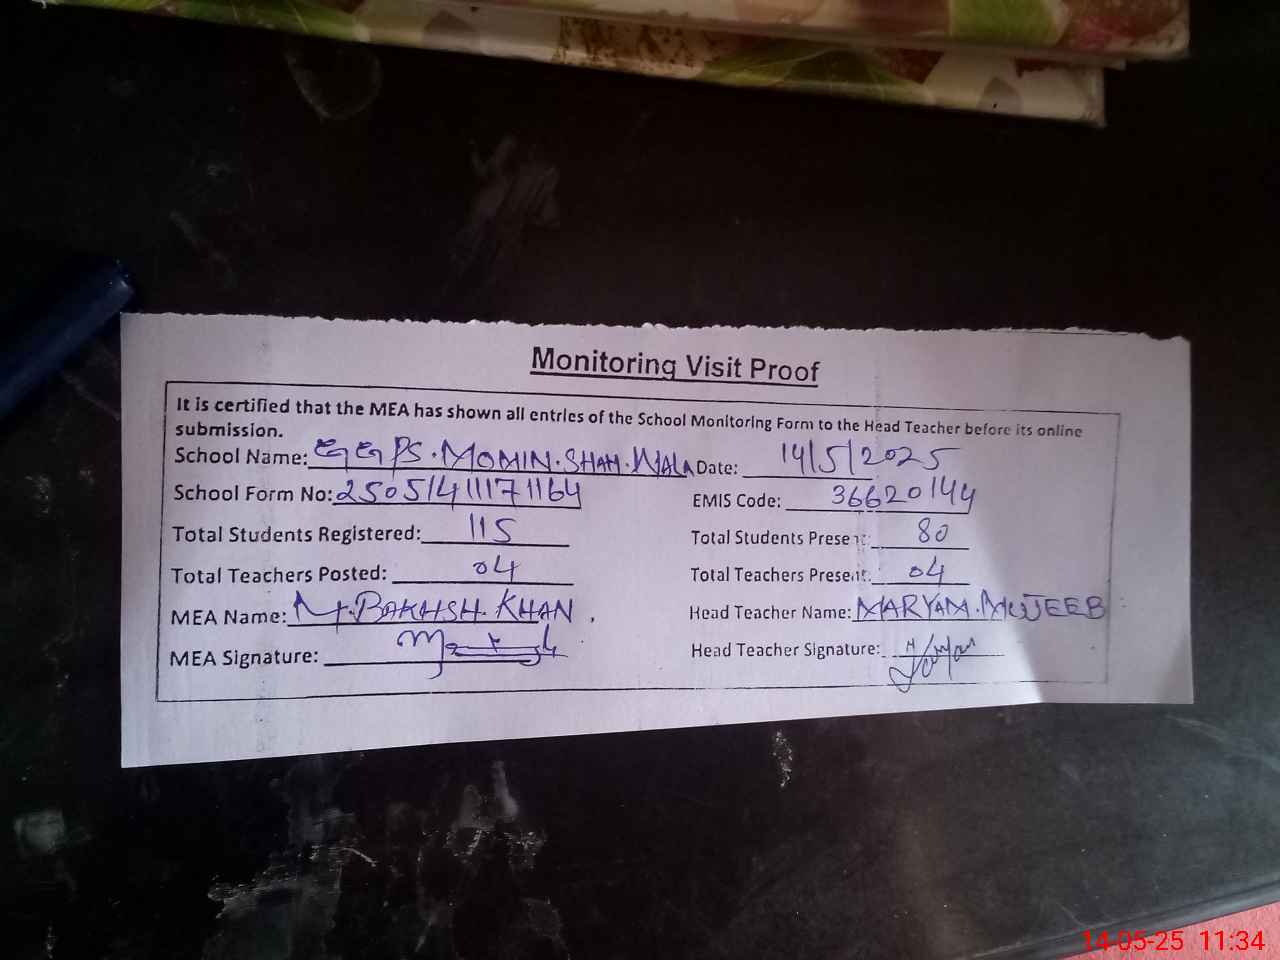 Monitoring Visit Proof
It is certified that the MEA has shown all entries of the School Monitoring Form to the Head Teacher before its online
submission.
School Name: GGPS. MOMIN. SHAH. WALA Date: 14/5/2025
School Form No: 25051411171164 EMIS Code: 36620144
Total Students Registered: 115 Total Students Present: 80
Total Teachers Posted: 04 Total Teachers Present: 04
MEA Name: M. BAKHSH. KHAN Head Teacher Name: MARYAM. MUJEEB
MEA Signature: Head Teacher Signature:
14-05-25 11:34